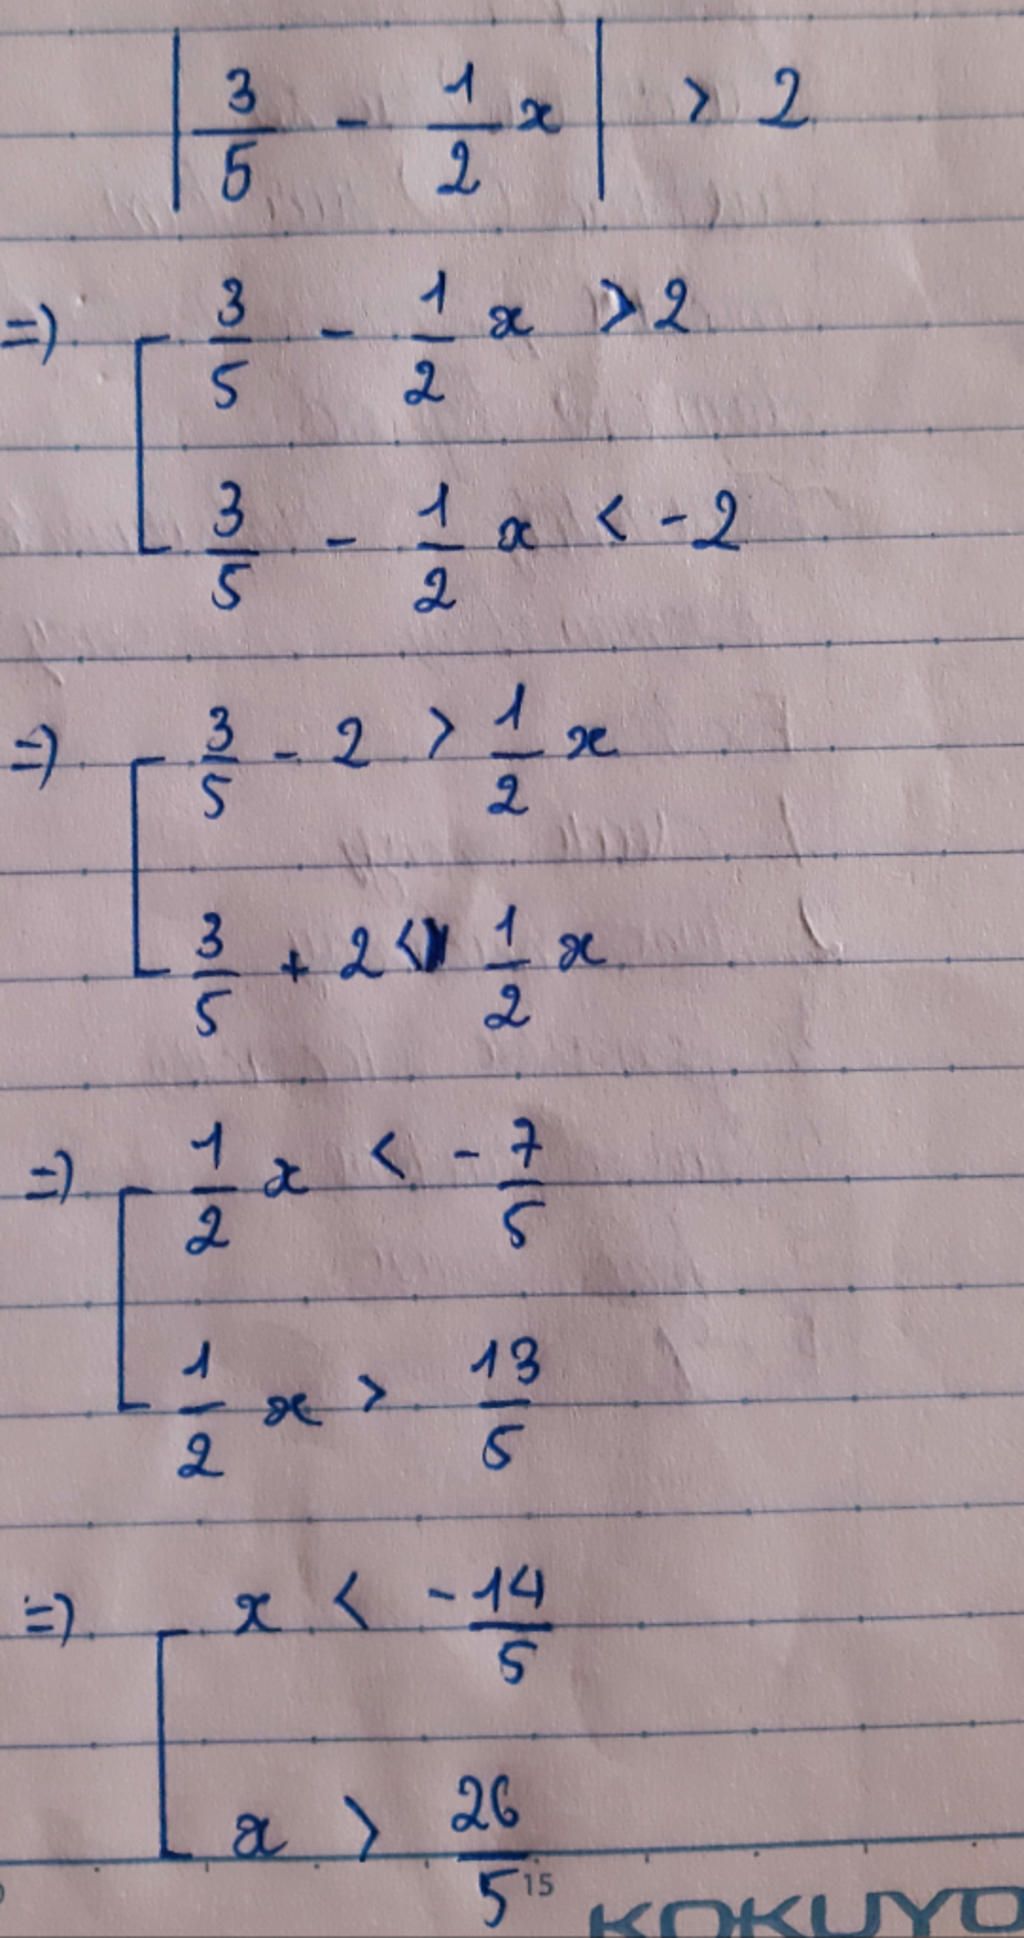 | 3/5 - 1/2 x | > 2
=) [ 3/5 - 1/2 x > 2
3/5 - 1/2 x < -2
=) [ 3/5 - 2 > 1/2 x
3/5 + 2 < 1/2 x
=) [ 1/2 x < - 7/5
1/2 x > 13/5
=) [ x < - 14/5
x > 26/5
15
KOKUYO